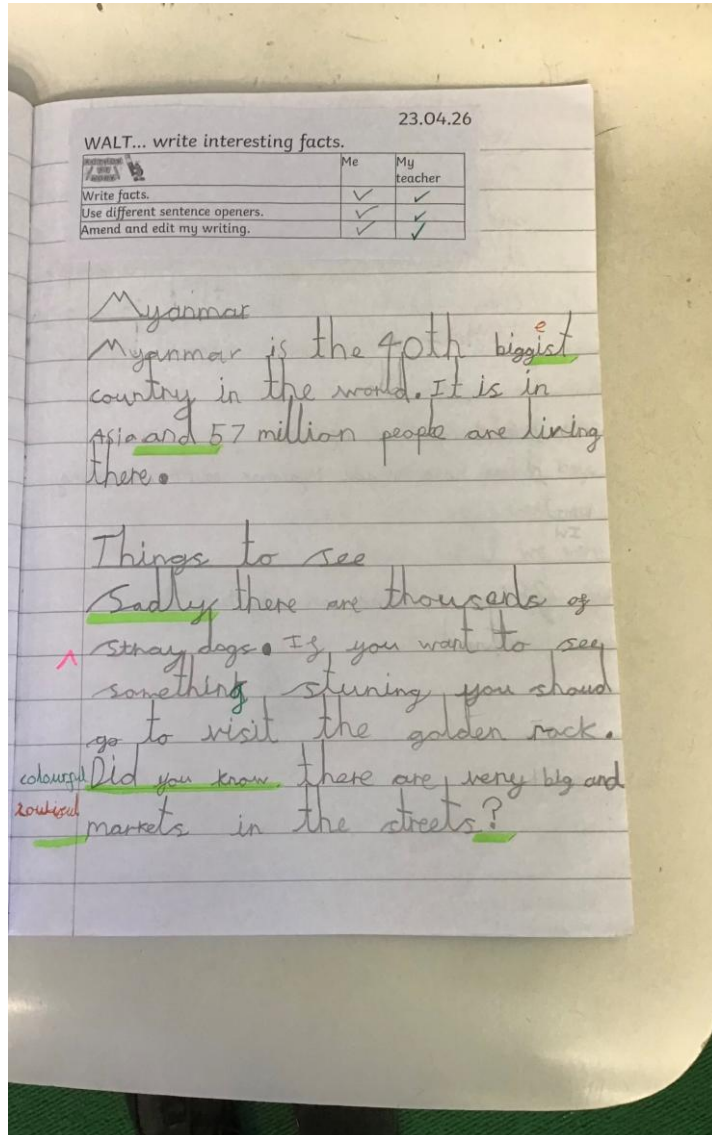 23.04.26
WALT... write interesting facts.
Me My teacher
Write facts. ✓ ✓
Use different sentence openers. ✓ ✓
Amend and edit my writing. ✓ ✓
Myanmar
e
Myanmar is the 40th biggist
country in the world. It is in
Asia and 57 million people are living
there.
Things to see
Sadly there are thousends of
stray dogs. If you want to see
something stuning you shoud
go to visit the golden rock.
colourful Did you know there are very big and
markets in the streets?